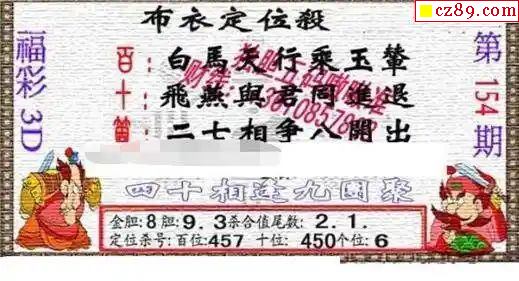 cz89.com
布衣定位殺
福彩3D
第154期
百：白馬天行乘玉輦
十：飛燕與君同進退
個：二七相爭八開出
四十相逢九團聚
金胆：8胆：9.3杀合值尾数：2.1.
定位杀号：百位：457 十位：450个位：6